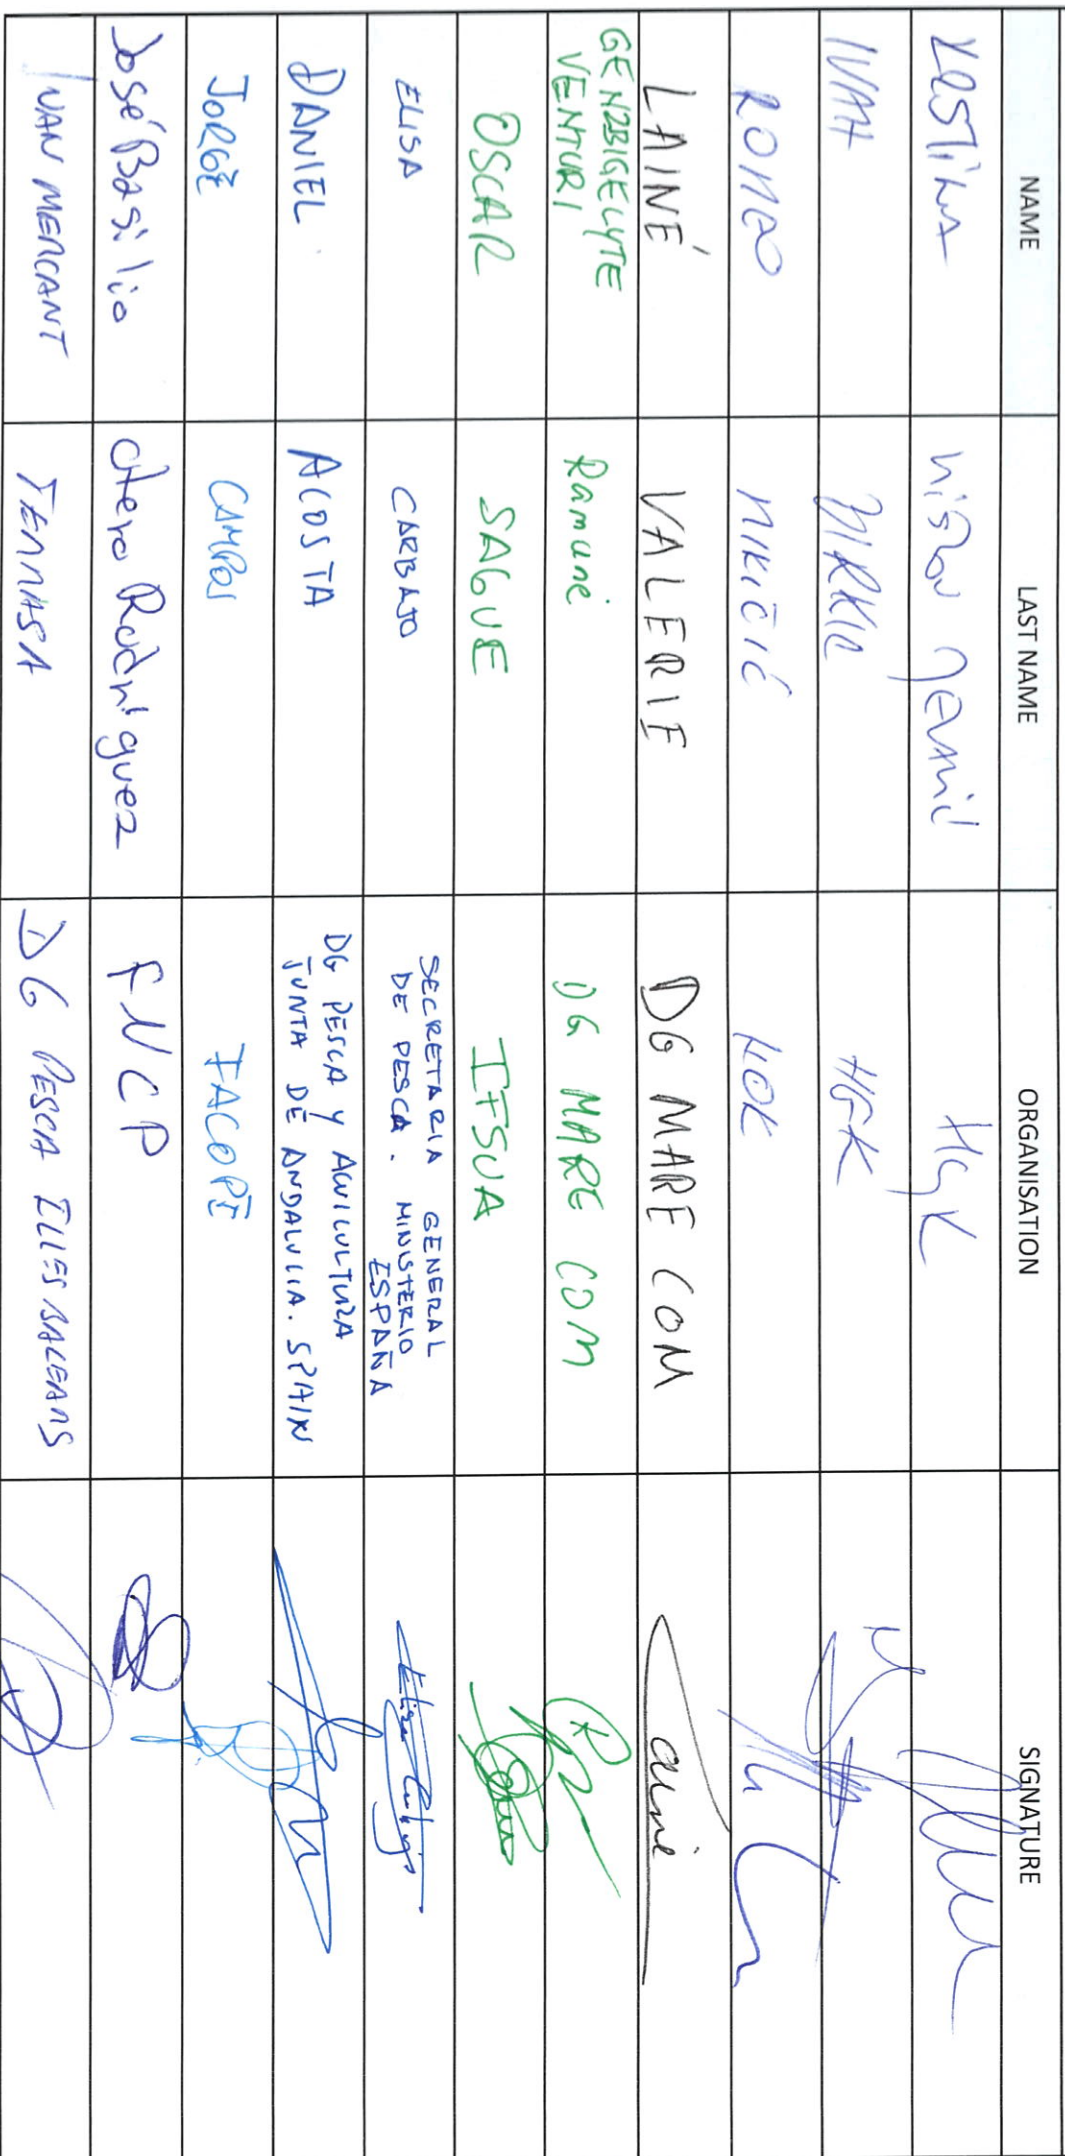 NAME LAST NAME ORGANISATION SIGNATURE
HGK
IVAN MIRKIĆ HGK
ROMEO NIKIČIĆ HOK
LAINÉ VALERIE DG MARE COM Lainé
GENZBIGELYTE VENTURI Ramuné DG MARE COM
OSCAR SAGUE IFSUA
ELISA CARBAJO SECRETARIA GENERAL DE PESCA. MINISTERIO ESPAÑA
DANIEL ACOSTA DG PESCA Y ACUICULTURA JUNTA DE ANDALUCIA. SPAIN
JORGE CAMPOS FACOPE
José Basilio Otero Rodríguez FNCP
JUAN MERCANT TERRASA DG PESCA ILLES BALEARS